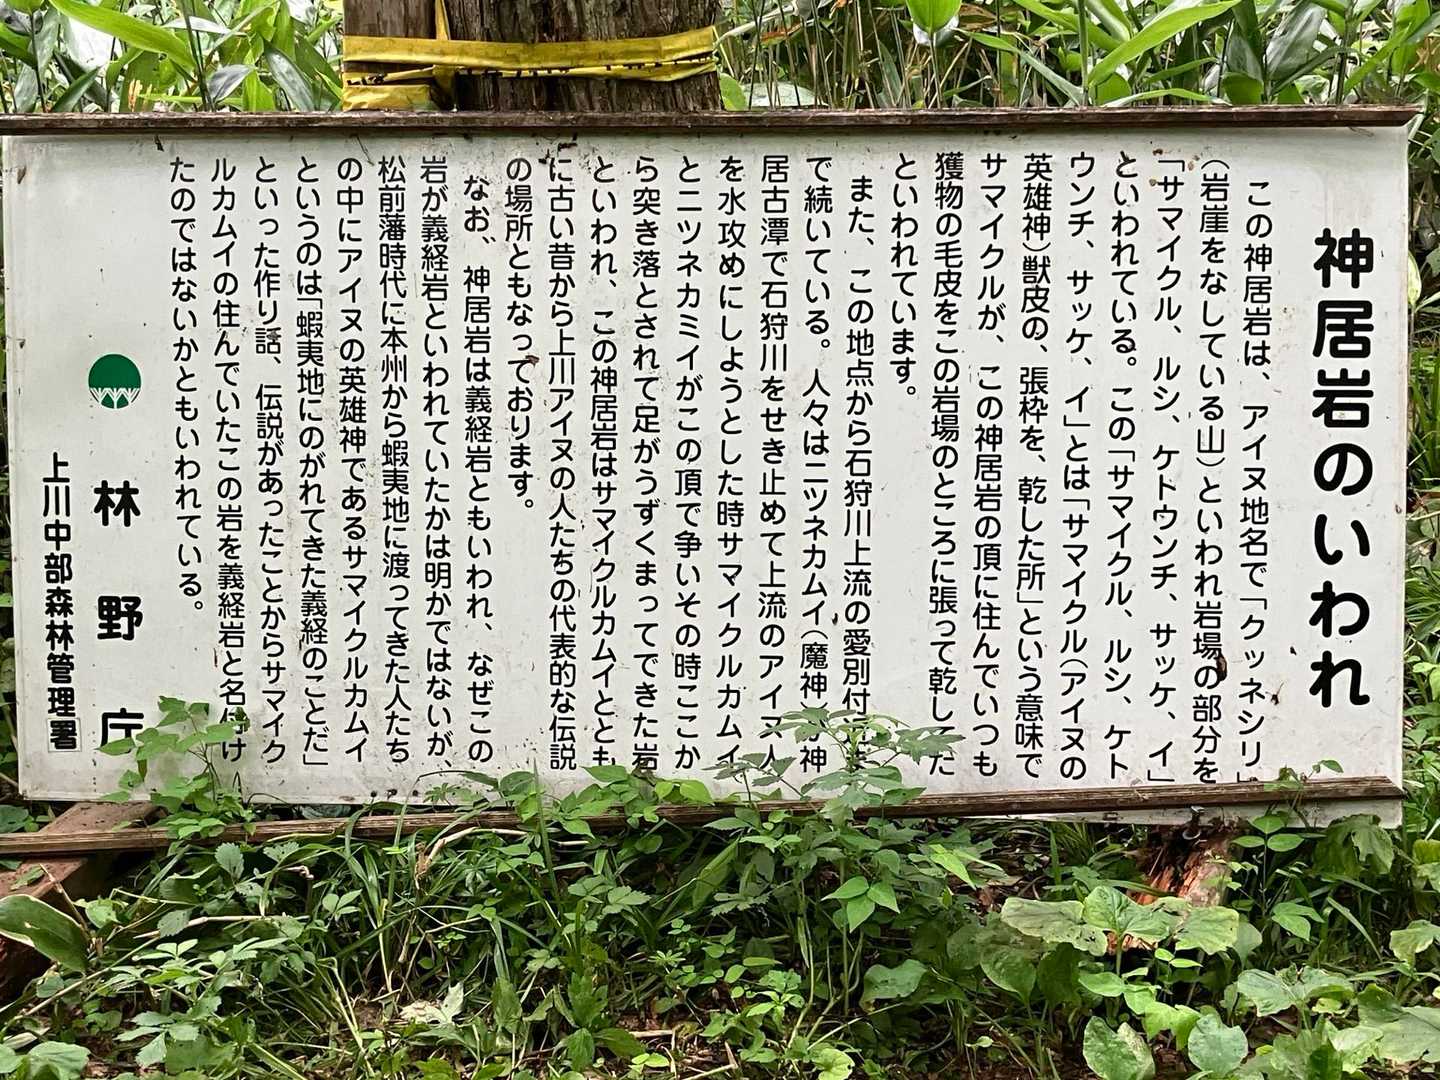 神居岩のいわれ
この神居岩は、アイヌ地名で「クッネシリ」
(岩崖をなしている山)といわれ岩場の部分を
「サマイクル、ルシ、ケトウンチ、サッケ、イ」
といわれている。この「サマイクル、ルシ、ケト
ウンチ、サッケ、イ」とは「サマイクル(アイヌの
英雄神)獣皮の、張枠を、乾した所」という意味で
サマイクルが、この神居岩の頂に住んでいつも
獲物の毛皮をこの岩場のところに張って乾してた
といわれています。
また、この地点から石狩川上流の愛別付近ま
で続いている。人々はニツネカムイ(魔神)が神
居古潭で石狩川をせき止めて上流のアイヌ人
を水攻めにしようとした時サマイクルカムイ
とニツネカミイがこの頂で争いその時ここか
ら突き落とされて足がうずくまってできた岩
といわれ、この神居岩はサマイクルカムイととも
に古い昔から上川アイヌの人たちの代表的な伝説
の場所ともなっております。
なお、神居岩は義経岩ともいわれ、なぜこの
岩が義経岩といわれていたかは明かではないが、
松前藩時代に本州から蝦夷地に渡ってきた人たち
の中にアイヌの英雄神であるサマイクルカムイ
というのは「蝦夷地にのがれてきた義経のことだ」
といった作り話、伝説があったことからサマイク
ルカムイの住んでいたこの岩を義経岩と名付け
たのではないかともいわれている。
林野庁
上川中部森林管理署